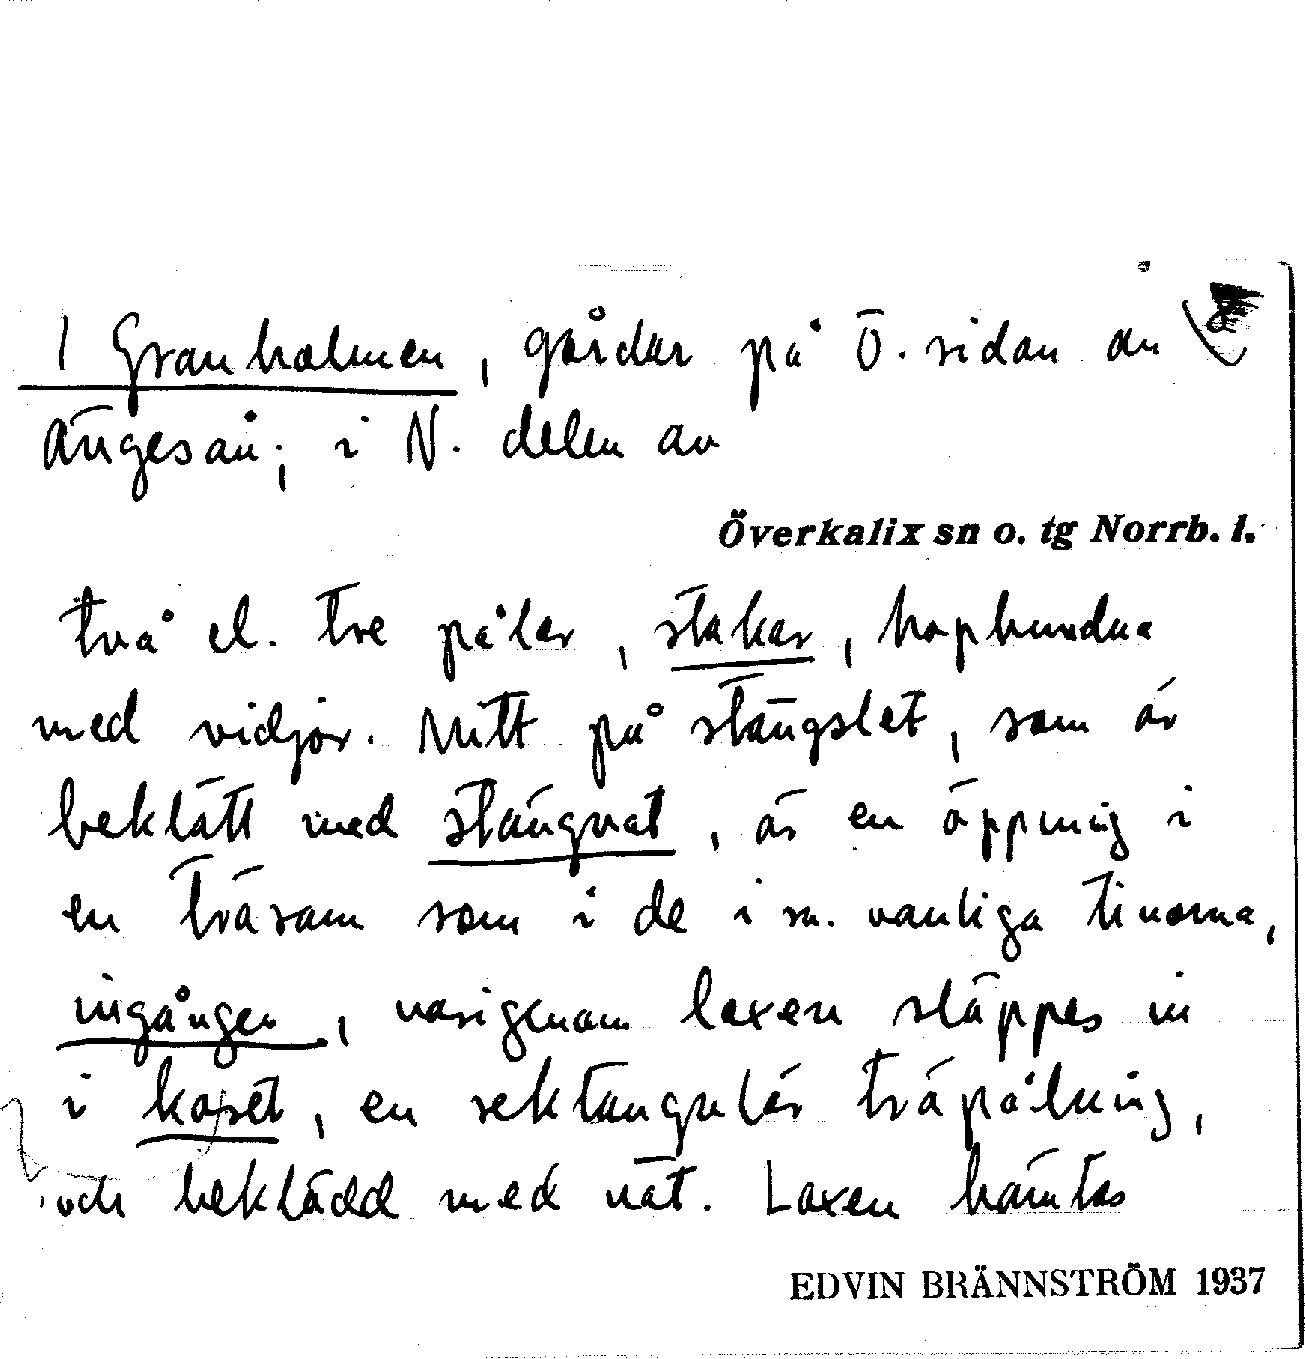 1 Granholmen, gårdar på Ö. sidan av
Ängesån; i N. delen av
Överkalix sn o. tg Norrb. l.
två el. tre pålar, stakar, hopbundna
med vidjor. Mitt på stängslet, som är
beklätt med stängnät, är en öppning i
en träram som i de i sn. vanliga tinorna,
ingången, varigenom laxen släppes in
i kaset, en rektangulär träpålning,
och beklädd med nät. Laxen hämtas
EDVIN BRÄNNSTRÖM 1937